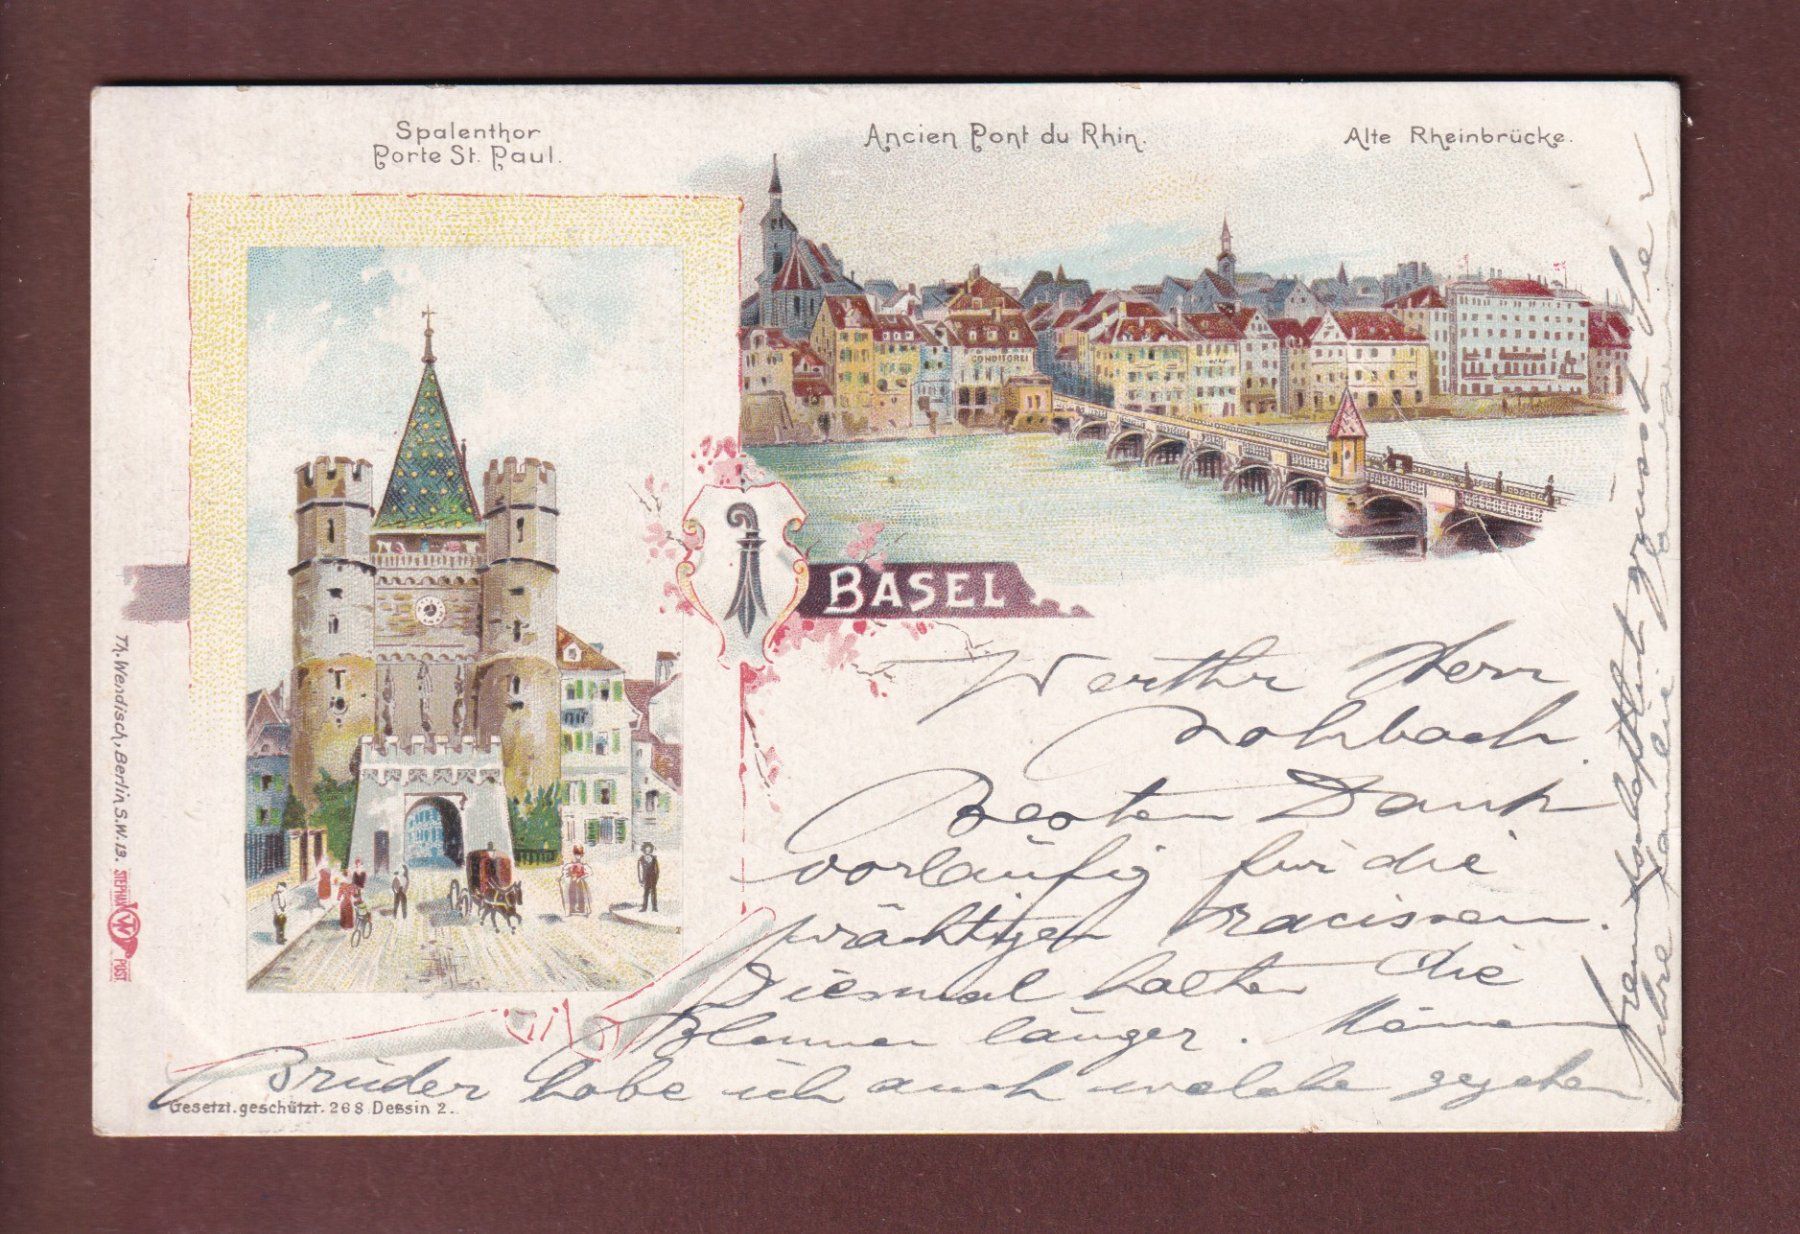 Spalenthor
Porte St. Paul.
Ancien Pont du Rhin.
Alte Rheinbrücke.
CONDITOREI
BASEL
Th. Wendisch, Berlin S.W. 13.
STEPHAN
W
POST
Werthr Herr
Rohrbach
Besten Dank
vorläufig für die
prächtigen Narcissen.
Diesmal halten die
Blumen länger. Meinem
Bruder habe ich auch welche gegeben
freundschaftlich grüsst Sie
Ihre Familie
Gesetzt. geschützt. 268 Dessin 2.